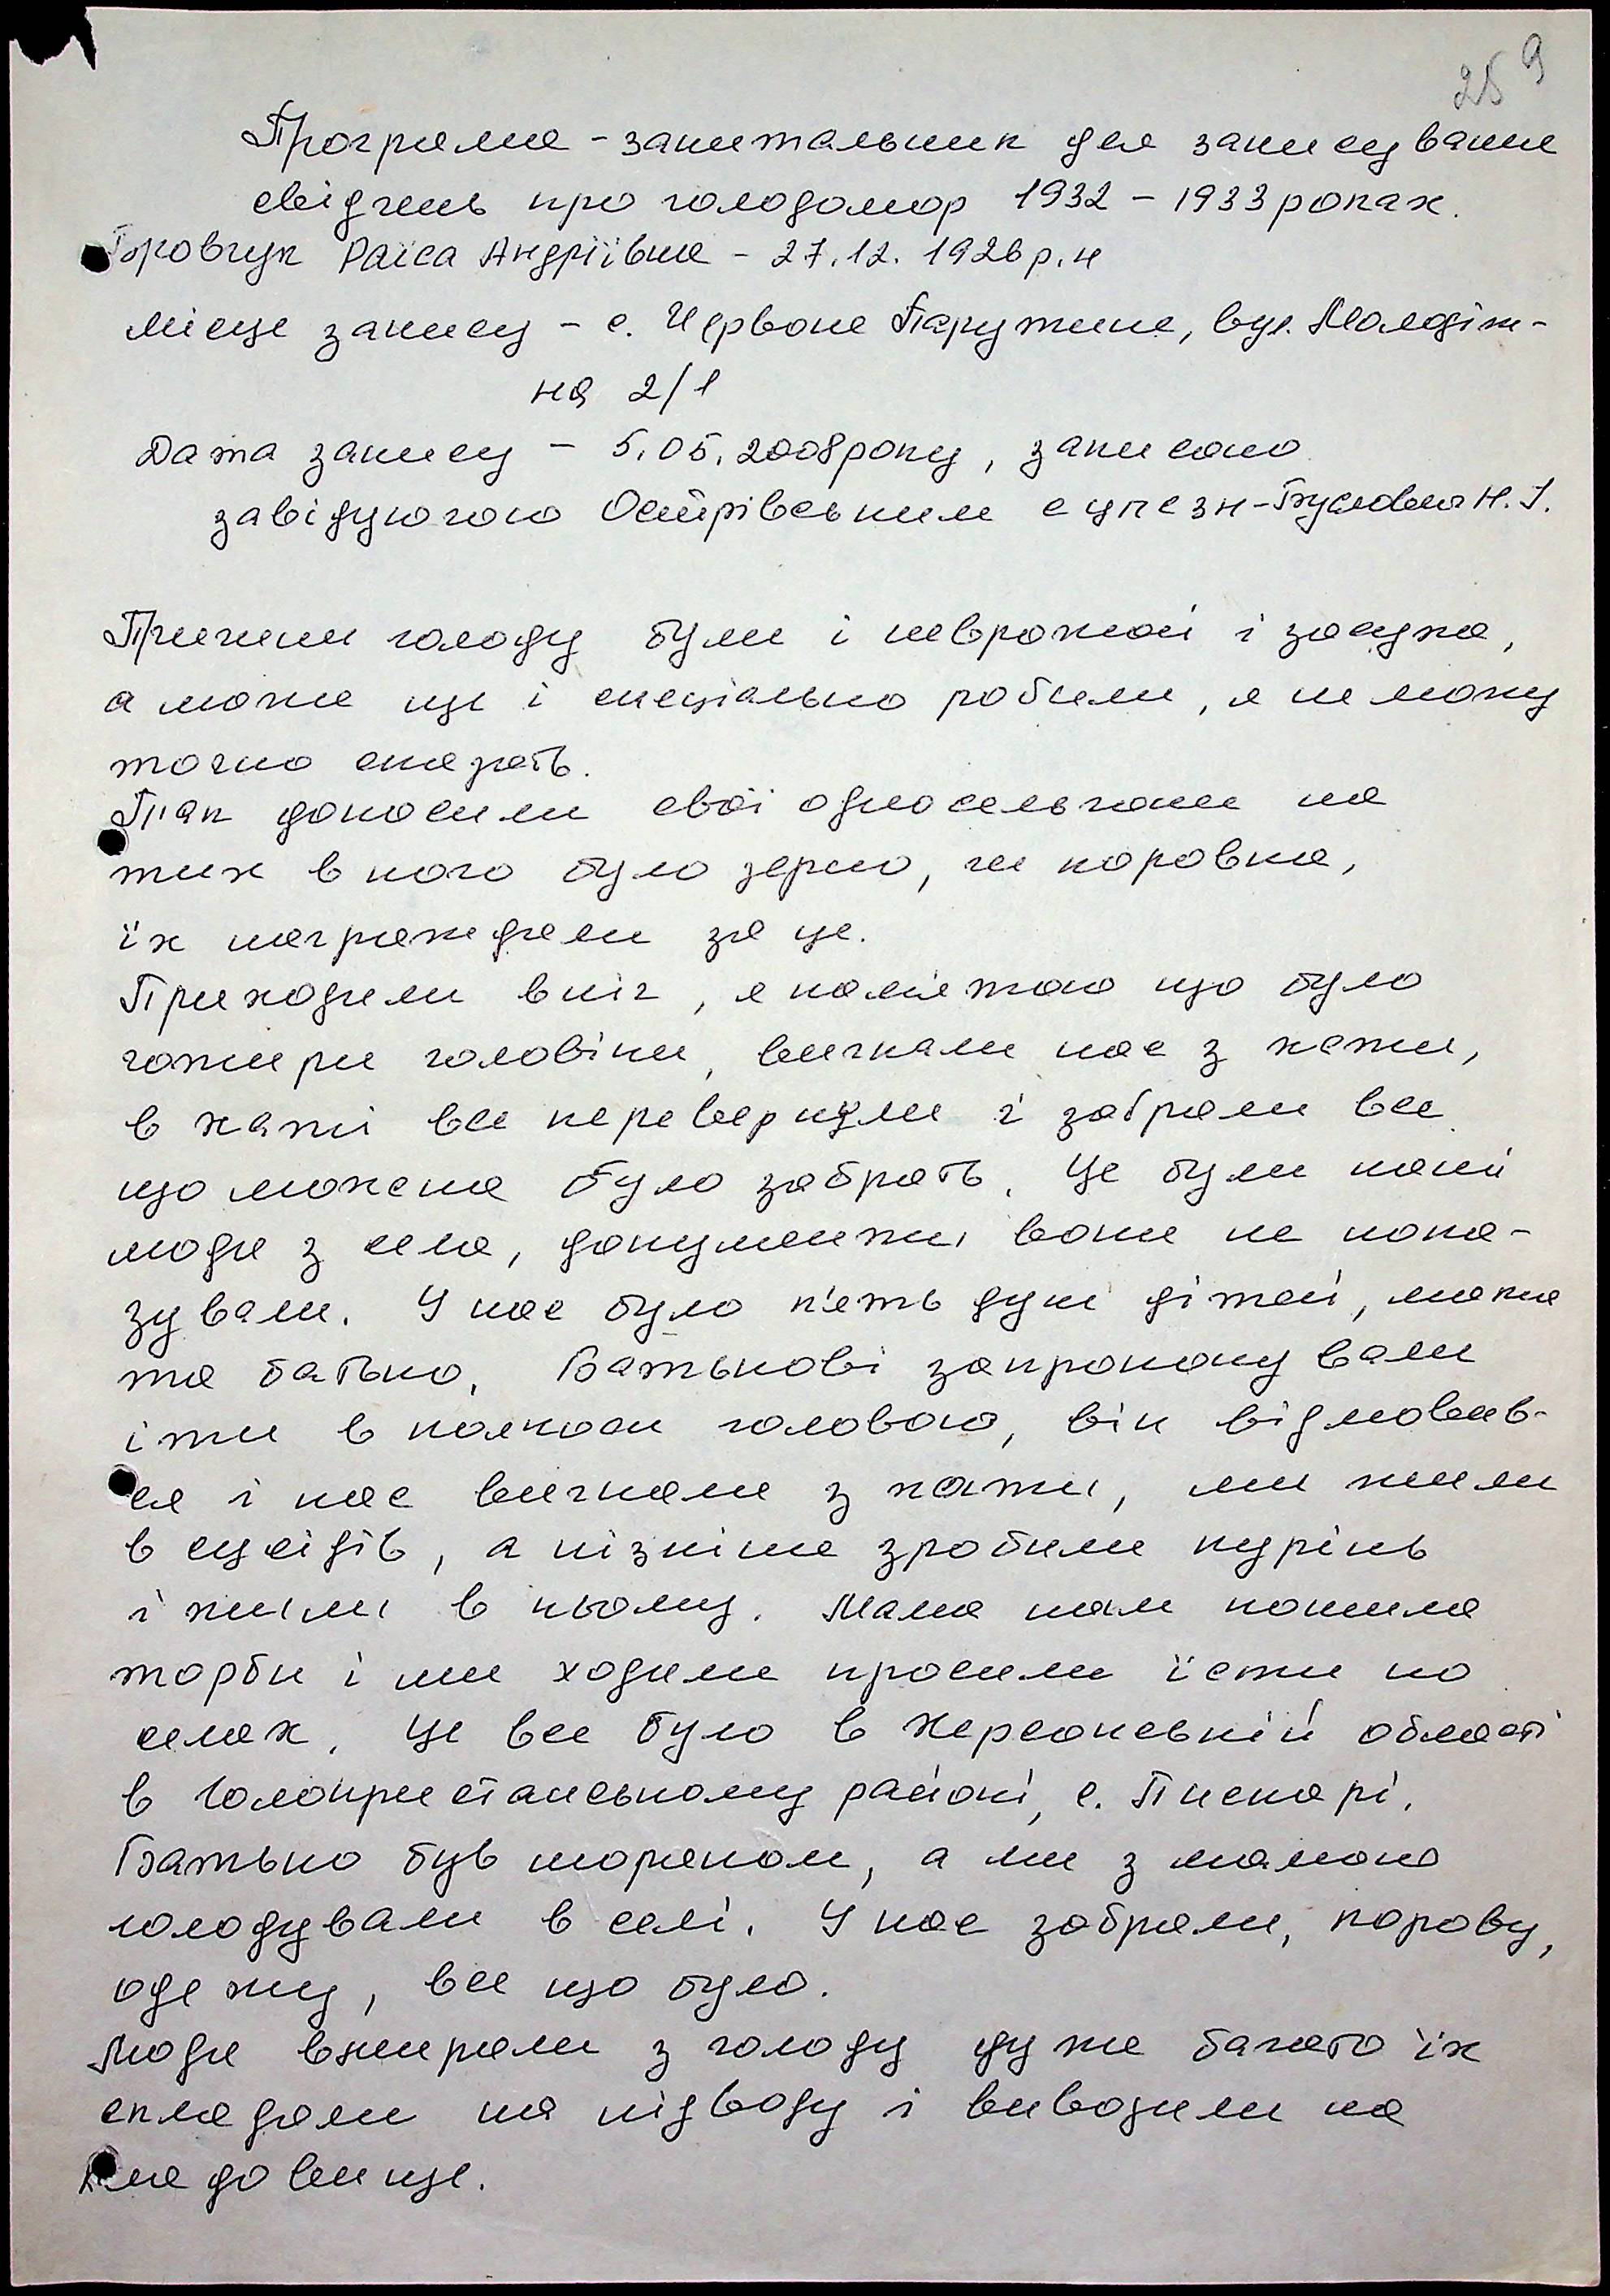 25 9
Програма - запитальник для записування
свідчень про голодомор 1932 - 1933 роках.
Бровчук Раїса Андріївна - 27.12. 1926 р.н
Місце запису - с. Червоне Парутине, вул. Молодіж-
на 2/1
Дата запису - 5.05.2008 року, записано
завідуючою Острівським
Н.І.
Причини голоду були і неврожай і засуха,
а може це і спеціально робили, я не можу
точно сказать.
Так доносили свої односельчани на
тих в кого було зерно, чи коровка,
їх награждали за це.
Приходили вніч, я памятаю що було
чотири чоловіки, вигнали нас з хати,
в хаті все перевернули і забрали все
що можена було забрать. Це були наші
люди з села, документи вони не пока-
зували. У нас було п'ять душ дітей, мама
та батько. Батькові запропонували
іти в колхоз головою, він відмовив-
ся і нас вигнали з хати, ми жили
в сусідів, а пізніше зробили курінь
і жили в ньому. Мама нам пошила
торби і ми ходили просили їсти по
селах. Це все було в Херсонській області
в Голопристанському районі, с. Пискарі.
Батько був моряком, а ми з мамою
голодували в селі. У нас забрали, корову,
одежу, все що було.
Люди вмирали з голоду дуже багато їх
складали на підводу і вивозили на
кладовище.